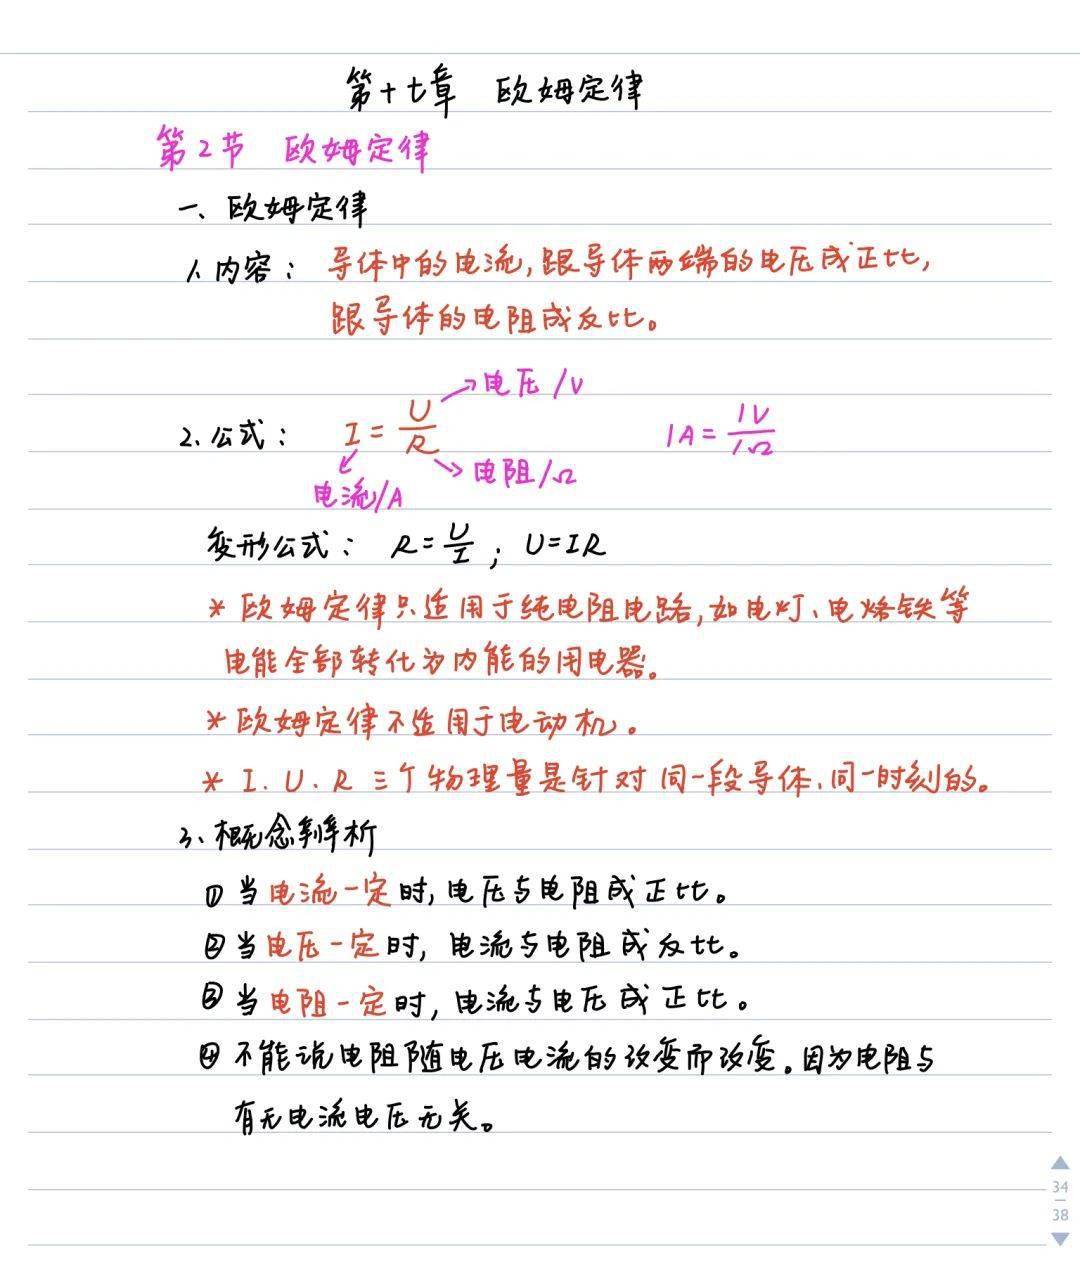 第十七章 欧姆定律
第2节 欧姆定律
一、欧姆定律
1.内容：导体中的电流,跟导体两端的电压成正比,
跟导体的电阻成反比。
2.公式： I=U/R →电压/V →电阻/Ω 电流/A 1A=1V/1Ω
变形公式： R=U/I ; U=IR
* 欧姆定律只适用于纯电阻电路,如电灯、电烙铁等
电能全部转化为内能的用电器。
* 欧姆定律不适用于电动机。
* I. U. R 三个物理量是针对同一段导体、同一时刻的。
3、概念辨析
①当电流一定时,电压与电阻成正比。
②当电压一定时,电流与电阻成反比。
③当电阻一定时,电流与电压成正比。
④不能说电阻随电压电流的改变而改变。因为电阻与
有无电流电压无关。
34
38